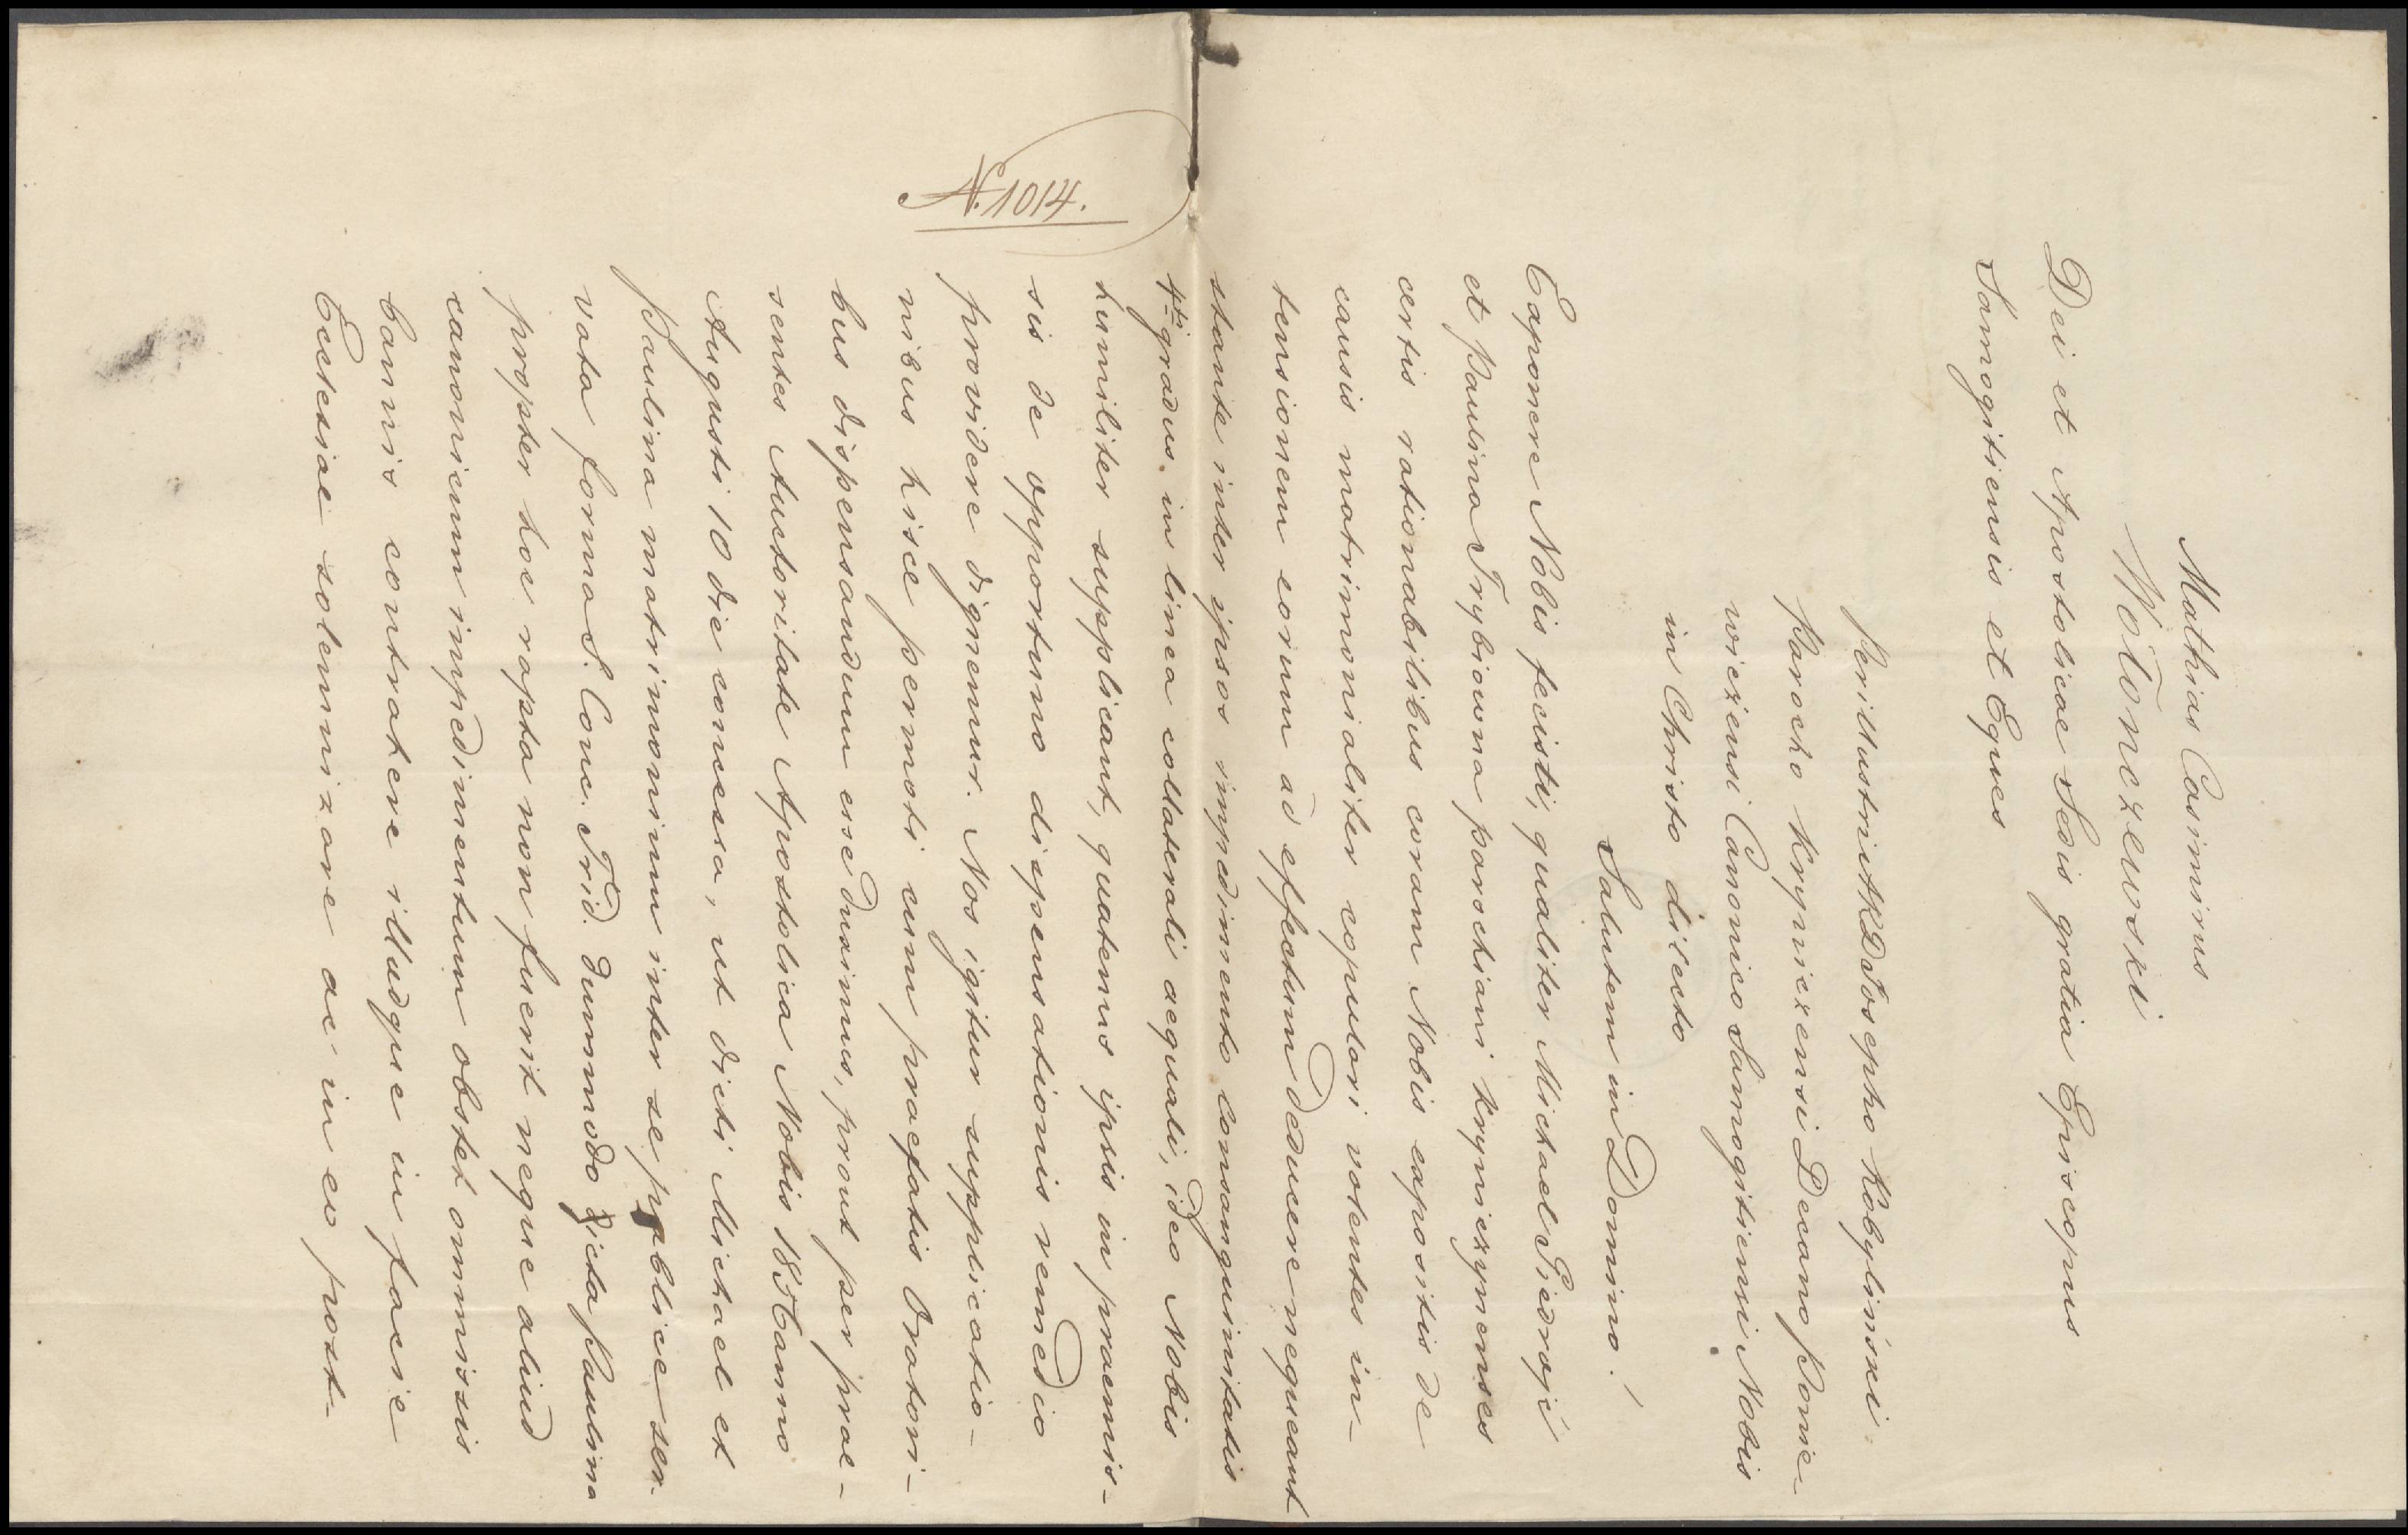 Mathias Casimirus
Wołonczewski
Dei et Apostolicae Sedis gratia Episcopus
Samogitiensis et Eques
Perillustri AKD Josepho Kobylinski
Parocho Krynicensi Decano Ponie-
wiezensi Canonico Samogitiensi Nobis
in Christo dilecto
Salutem in Domino!
Exponere Nobis fecisti, qualiter Michael Giedrojć
et Paulina Trybiowna parochiani Kryniczynenses
certis rationabilibus coram Nobis expositis de
causis matrimonialiter copulari volentes in-
tensionem eorum ad effectum deducere nequeant
stante inter ipsos impedimento consanguinitatis
4ti gradus in linea collaterali aequali, ideo Nobis
humiliter supplicant, quatenus ipsis in praemis-
sis de opportuno dispensationis remedio
providere dignemur. Nos igitur supplicatio-
nibus hisce permoti cum praefatis Oratori-
bus dispensandum esse duximus, prout per prae-
sentes Auctoritate Apostolica Nobis 185 anno
Augusti 10 die concessa, ut dicti Michael et
Paulina matrimonium inter se publice ser-
vata forma S. Conc. Trid. dummodo dicta Paulina
propter hoc rapta non fuerit neque aliud
canonicum impedimentum obstet ommissis
bannis contrahere illudque in facie
Ecclesiae solemnizare ac in eo post-
N. 1014.